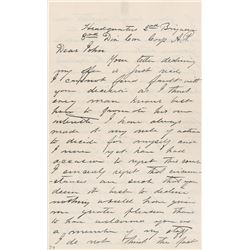 Headquarters 2nd Brigade
2nd Div Cav Corps A.P.
Dear John
Your letter declining
my offer is just rec'd.
I cannot find fault with
your decision as I think
every man knows best
how to promote his own
interests I have always
made it my rule of action
to decide for myself and
I never yet have had
occasion to regret this course
I sincerely regret that circum
stances are such that you
deem it best to decline
nothing would have given
me greater pleasure than
to have welcomed you as
a member of my staff
I do not think the fact